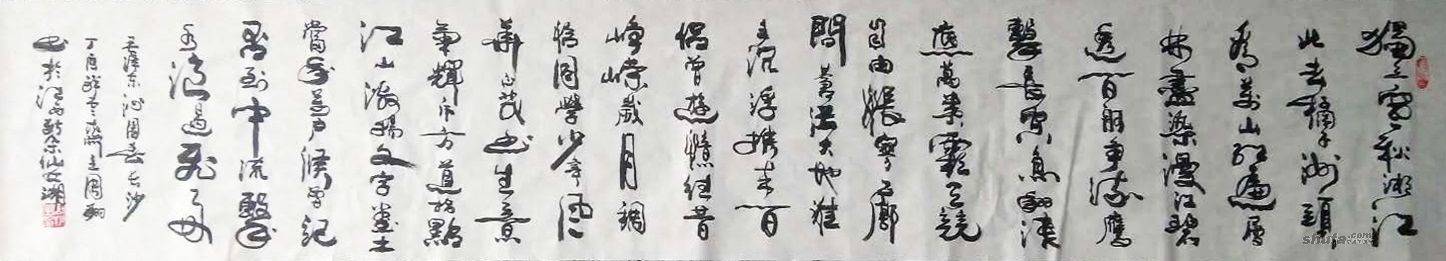 獨立寒秋湘江
北去橘子洲頭
看萬山紅遍層
林盡染漫江碧
透百舸争流鷹
擊長空魚翔淺
底萬类霜天競
自由悵寥廓
問蒼茫大地誰
主沉浮携来百
侣曾遊憶往昔
崢嶸歲月稠
恰同學少年風
華正茂书生意
氣輝斥方遒指點
江山激揚文字糞土
當年萬户侯曾記
否到中流擊
水浪遏飛舟
毛澤東沁園春長沙
丁酉
书於
shufa.com